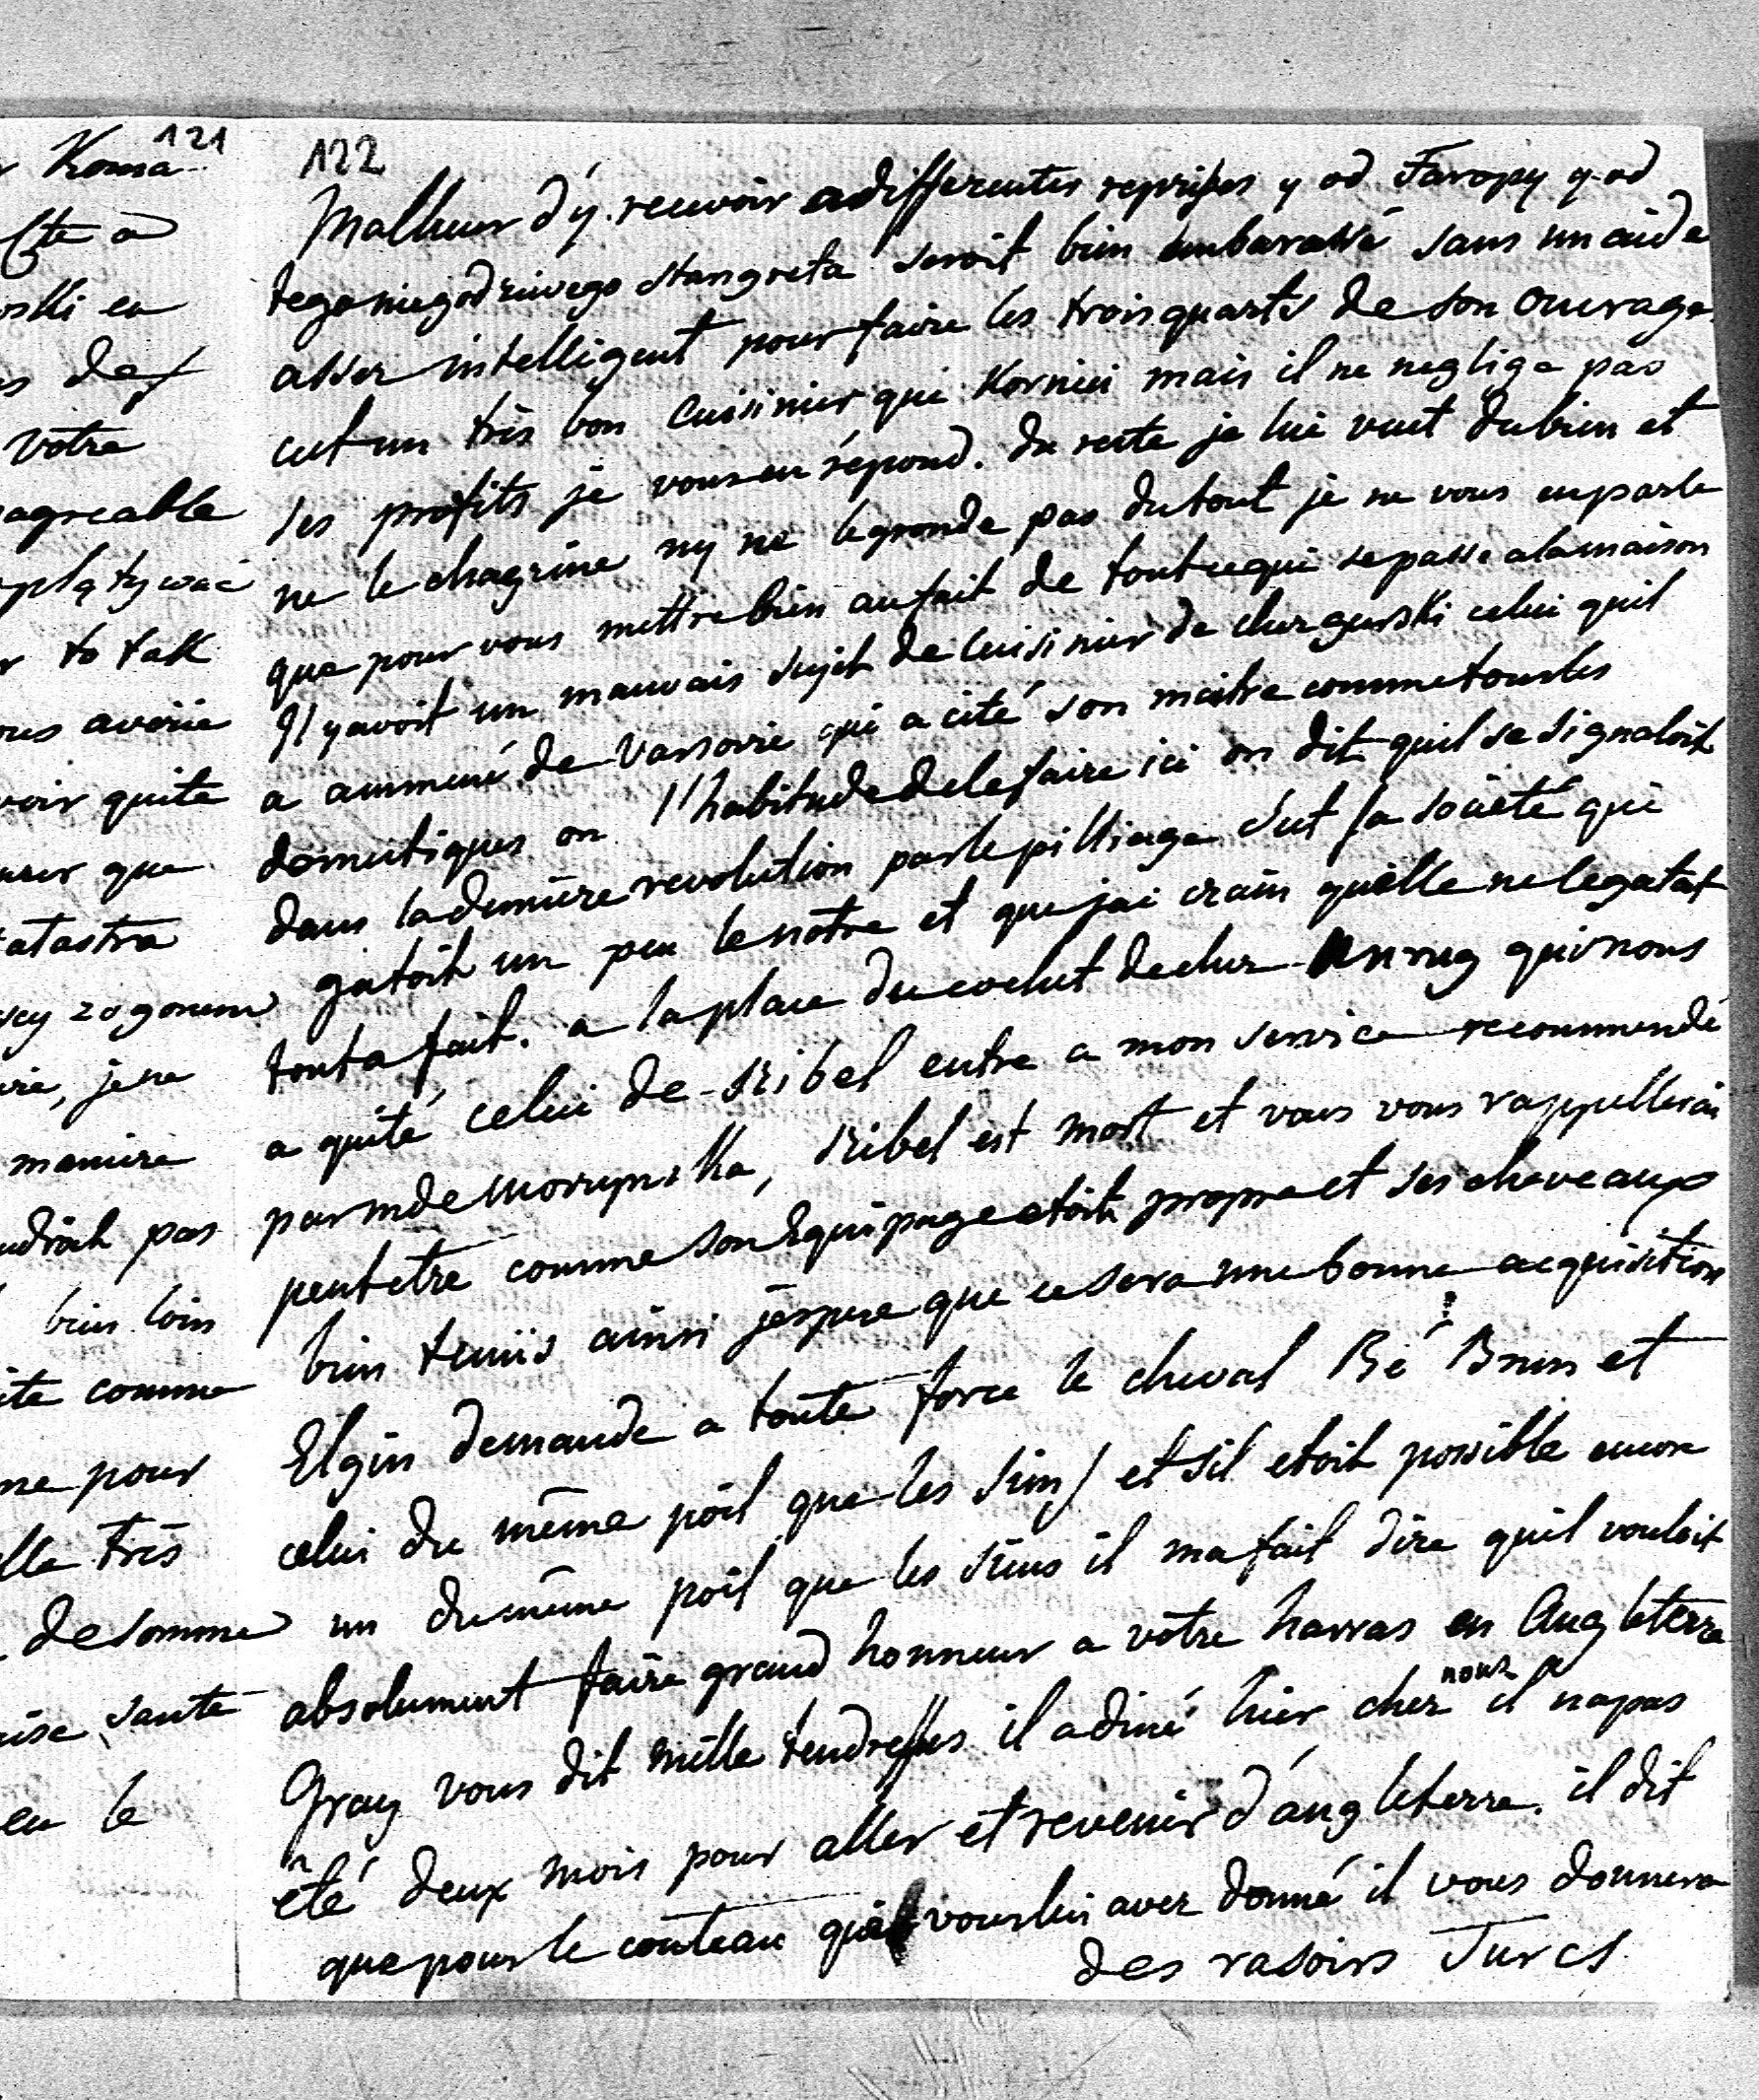 121
r Koma
122
Malheur d'y recevoir a differentes reprises y od Faropy y od
tego niegodziwego Stangreta seroit bien embarassé sans un aide
asser intelligent pour faire les trois quarts de son ouvrage
cest un très bon Cuisinier que Korniei mais il ne neglige pas
ses profits je vous en répond. du reste je lui veut du bien et
ne le chagrine ny ne le gronde pas du tout je ne vous en parle
que pour vous mettre bien au fait de tout ce qui se passe a la maison
Il y avoit un mauvais sujet de Cuisinier de chez gurski celui quil
a ammené de Varsovie qui a cité son maitre comme tous les
domestiques on l'habitude de le faire ici on dit quil se signaloit
dans la derniere revolution par le pilliage c'est sa société qui
gatoit un peu le notre et que jai crain quelle ne le gatat
tout a fait. a la place du cochet de chez Unrug qui nous
a quité celui de Szibel entre a mon service recommendé
par mde Morzynska, Szibel est mort et vous vous rappellerai
peutetre comme son Equipage etoit propre et ses cheveaux
bien tenuis ainsi j'espere que ce sera une bonne acquisition
Elgin demande a toute force le cheval Bé Brun et
celui du même poil que les sien/ et sil etoit possible encore
un du même poil que les siens il ma fait dire quil vouloit
absolument faire grand honneur a vôtre harras en Angleterre
Gray vous dit mille tendresses il a diné hier chez nous il na pas
été deux mois pour aller et revenir d'angleterre. il dit
que pour le couteau que vous lui avez donné il vous donnera
des rasoirs Turcs
cte a
oski en
s de
votre
agreable
plątywać
r to tak
ous avoüe
voir quité
urer que
atastra
scy z ogonem
ire, je ne
maniere
udroit pas
bien loin
ite comme
ne pour
lle très
de somme
ise santé
en le